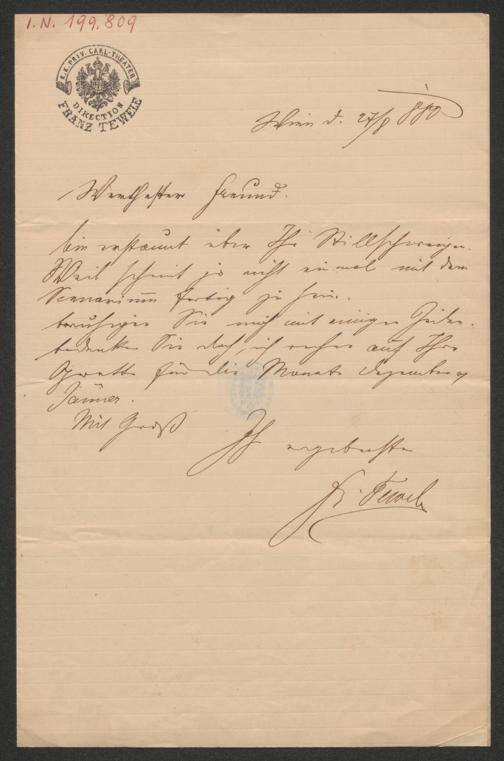 I.N. 199.809
K.K. PRIV. CARL-THEATER
DIRECTION
FRANZ TEWELE
Wien d. 27/8 880
Werthester Freund.
bin erstaunt über Ihr Stillschweigen.
Weil scheint ja nicht einmal mit dem
Scenarium fertig zu sein.
beruhigen Sie mich mit einigen Zeilen.
bedenken Sie doch, ich rechne auf Ihre
für die Monate Dezember
Jänner.
Mit Gruß
Ihr ergebenster
Fr. Tewele